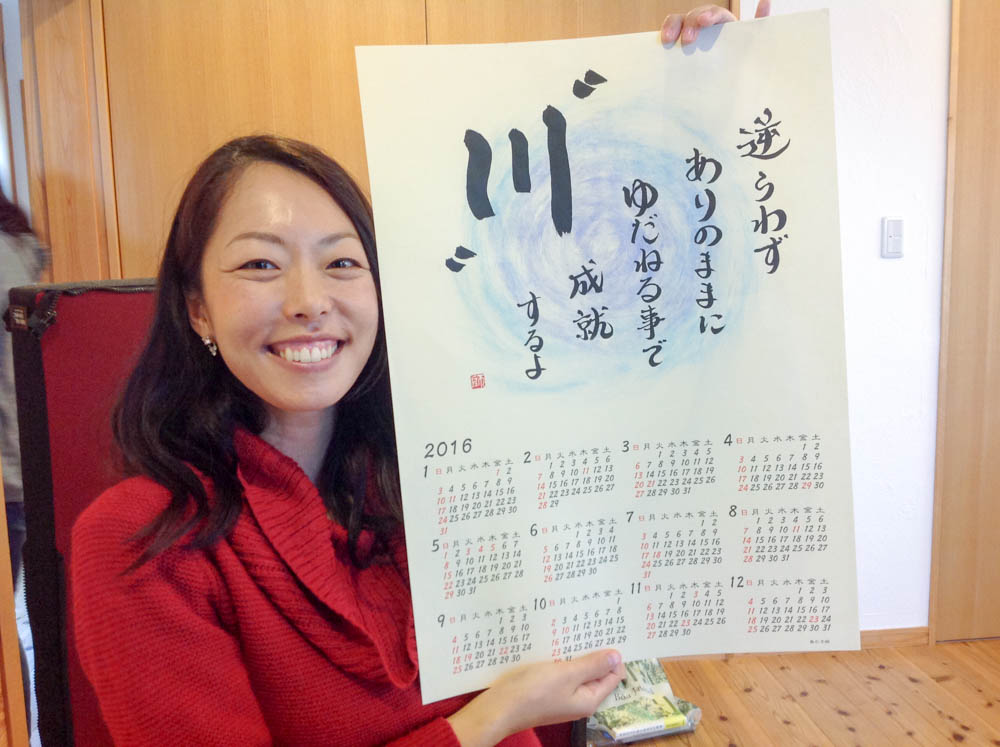 逆らわず
ありのままに
ゆだねる事で
〝川〟
成就
するよ
2016
1 日 月 火 水 木 金 土
1 2
3 4 5 6 7 8 9
10 11 12 13 14 15 16
17 18 19 20 21 22 23
24 25 26 27 28 29 30
31
2 日 月 火 水 木 金 土
1 2 3 4 5 6
7 8 9 10 11 12 13
14 15 16 17 18 19 20
21 22 23 24 25 26 27
28 29
3 日 月 火 水 木 金 土
1 2 3 4 5
6 7 8 9 10 11 12
13 14 15 16 17 18 19
20 21 22 23 24 25 26
27 28 29 30 31
4 日 月 火 水 木 金 土
1 2
3 4 5 6 7 8 9
10 11 12 13 14 15 16
17 18 19 20 21 22 23
24 25 26 27 28 29 30
5 日 月 火 水 木 金 土
1 2 3 4 5 6 7
8 9 10 11 12 13 14
15 16 17 18 19 20 21
22 23 24 25 26 27 28
29 30 31
6 日 月 火 水 木 金 土
1 2 3 4
5 6 7 8 9 10 11
12 13 14 15 16 17 18
19 20 21 22 23 24 25
26 27 28 29 30
7 日 月 火 水 木 金 土
1 2
3 4 5 6 7 8 9
10 11 12 13 14 15 16
17 18 19 20 21 22 23
24 25 26 27 28 29 30
31
8 日 月 火 水 木 金 土
1 2 3 4 5 6
7 8 9 10 11 12 13
14 15 16 17 18 19 20
21 22 23 24 25 26 27
28 29 30 31
9 日 月 火 水 木 金 土
1 2 3
4 5 6 7 8 9 10
11 12 13 14 15 16 17
18 19 20 21 22 23 24
25 26 27 28 29 30
10 日 月 火 水 木 金 土
1
2 3 4 5 6 7 8
9 10 11 12 13 14 15
16 17 18 19 20 21 22
23 24 25 26 27 28 29
30 31
11 日 月 火 水 木 金 土
1 2 3 4 5
6 7 8 9 10 11 12
13 14 15 16 17 18 19
20 21 22 23 24 25 26
27 28 29 30
12 日 月 火 水 木 金 土
1 2 3
4 5 6 7 8 9 10
11 12 13 14 15 16 17
18 19 20 21 22 23 24
25 26 27 28 29 30 31